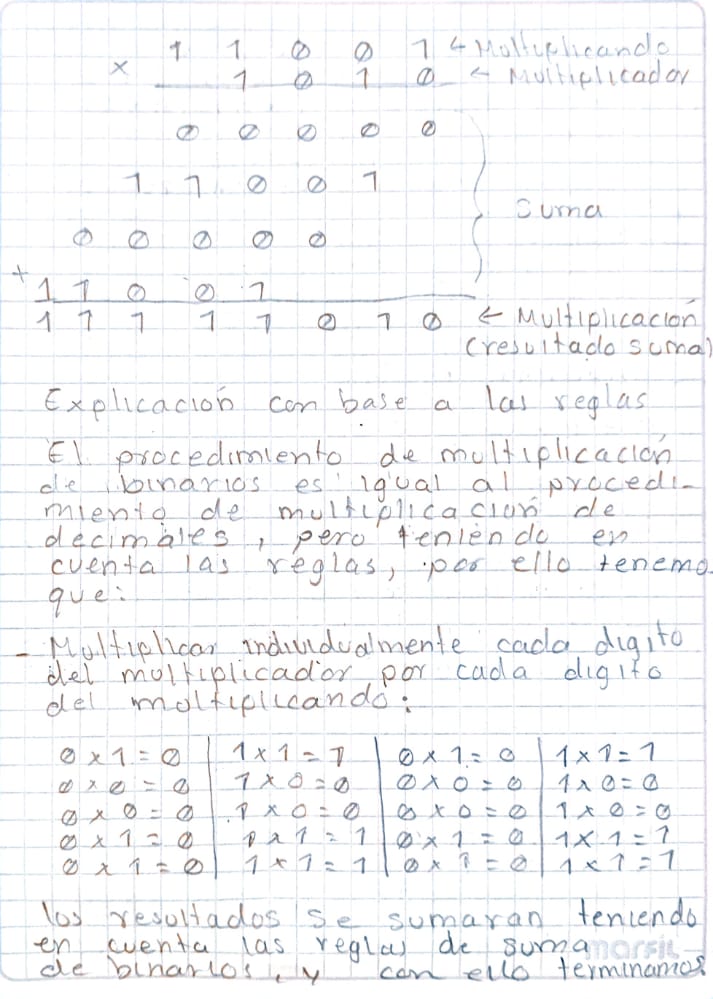 1 1 0 0 1 ← Multiplicando
x 1 0 1 0 ← Multiplicador
0 0 0 0 0
1 1 0 0 1
Suma
0 0 0 0 0
+ 1 1 0 0 1
1 1 1 1 1 0 1 0 ← Multiplicación
(resultado suma)
Explicación con base a las reglas
El procedimiento de multiplicación
de binarios es igual al procedi-
miento de multiplicación de
decimales, pero teniendo en
cuenta las reglas, por ello tenemo
que:
- Multiplicar individualmente cada digito
del multiplicador por cada digito
del multiplicando:
0 x 1 = 0 | 1 x 1 = 1 | 0 x 1 = 0 | 1 x 1 = 1
0 x 0 = 0 | 1 x 0 = 0 | 0 x 0 = 0 | 1 x 0 = 0
0 x 0 = 0 | 1 x 0 = 0 | 0 x 0 = 0 | 1 x 0 = 0
0 x 1 = 0 | 1 x 1 = 1 | 0 x 1 = 0 | 1 x 1 = 1
0 x 1 = 0 | 1 x 1 = 1 | 0 x 1 = 0 | 1 x 1 = 1
los resultados se sumaran teniendo
en cuenta las reglas de suma
marfil
de binarios, y con ello terminamos